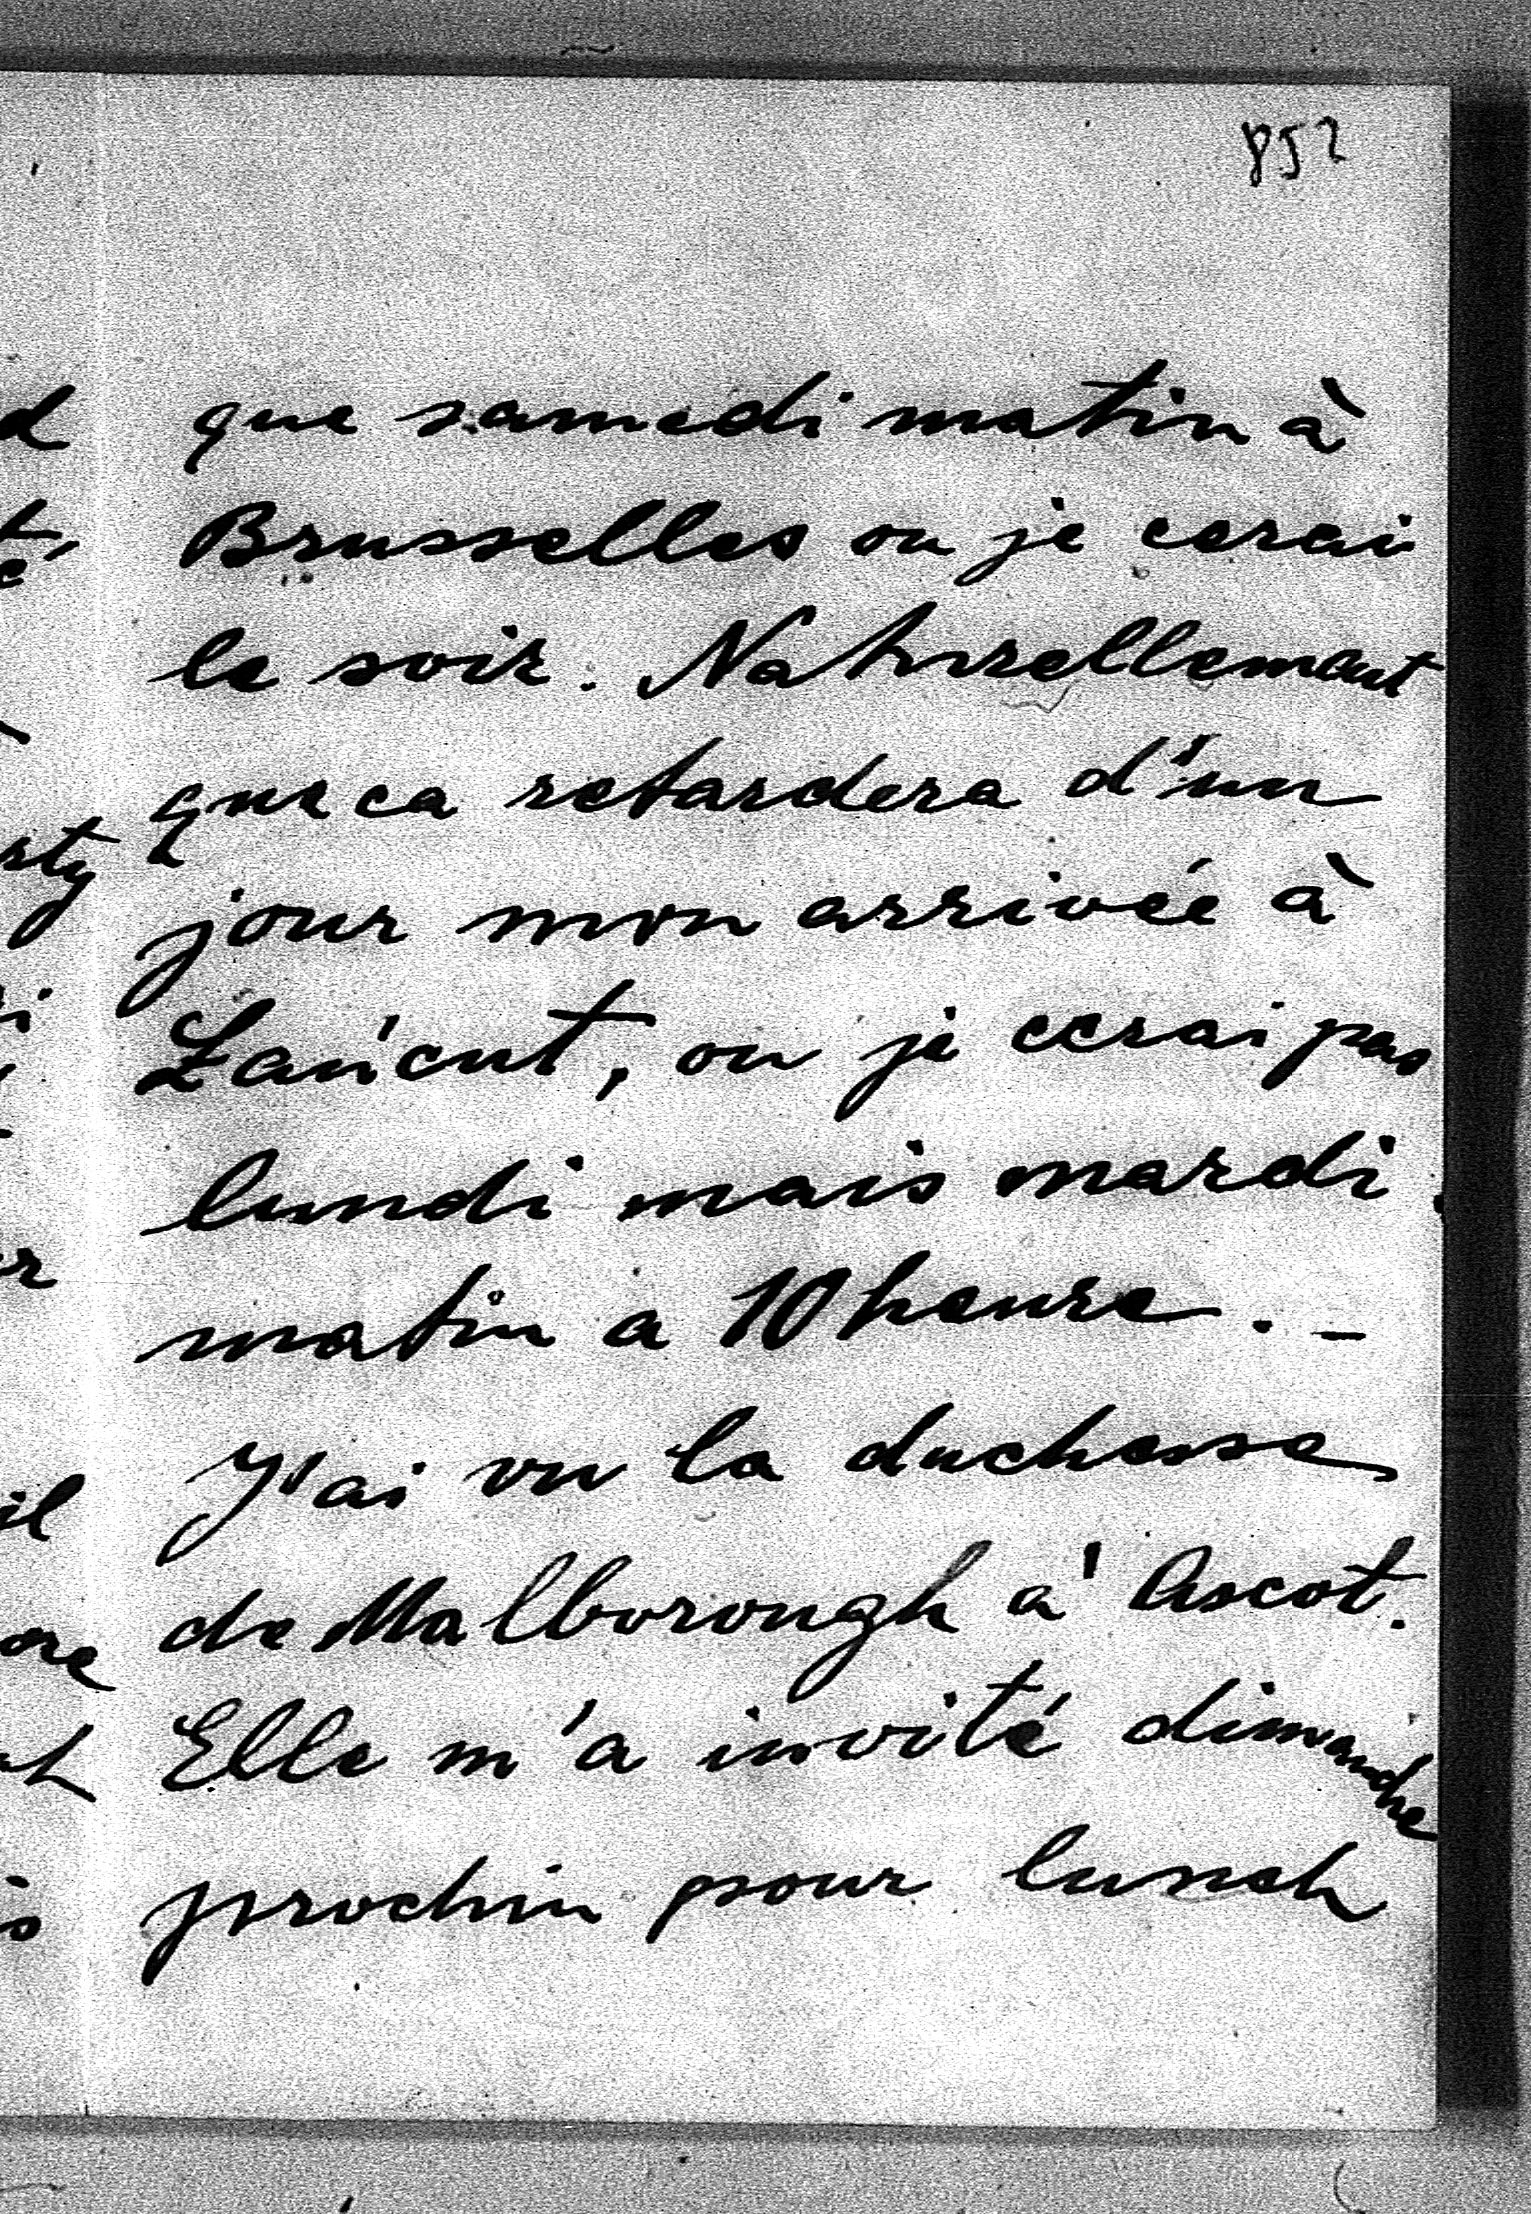 852
que samedi matin à
Brusselles ou je cerai
le soir. Naturellemant
que ca retardera d'un
jour mon arrivée à
Łańcut, ou je cerai pas
lundi mais mardi
matin a 10 heure. –
J'ai vu la duchesse
de Malborough à Ascot.
Elle m'a invité dimanche
prochin pour lunch